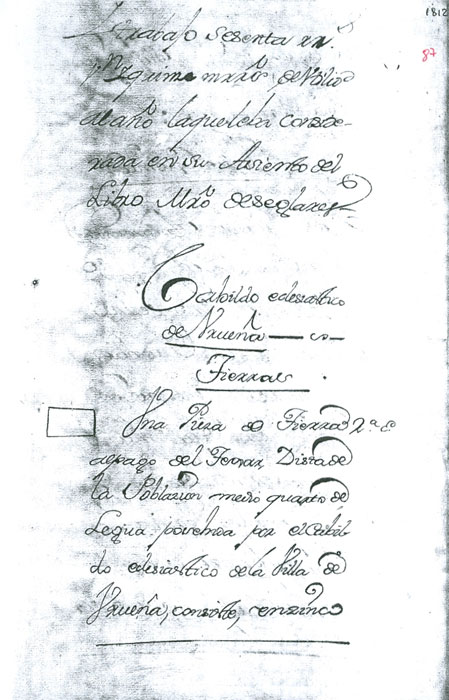 1812
87
trabajo sesenta rrˢ.
de Vellon
al año la que le ba conside-
rada en su Asiento del
Libro Mrô de seglares
Cabildo eclesiastico
de Vrueña
Tierras
Vna Pieza de Tierra 2ª c
al pago del Dista de
la Poblazion medio quarto de
Legua posehida por el Cabil
do eclesiastico de la Villa de
Vrueña, consiste, en zinco